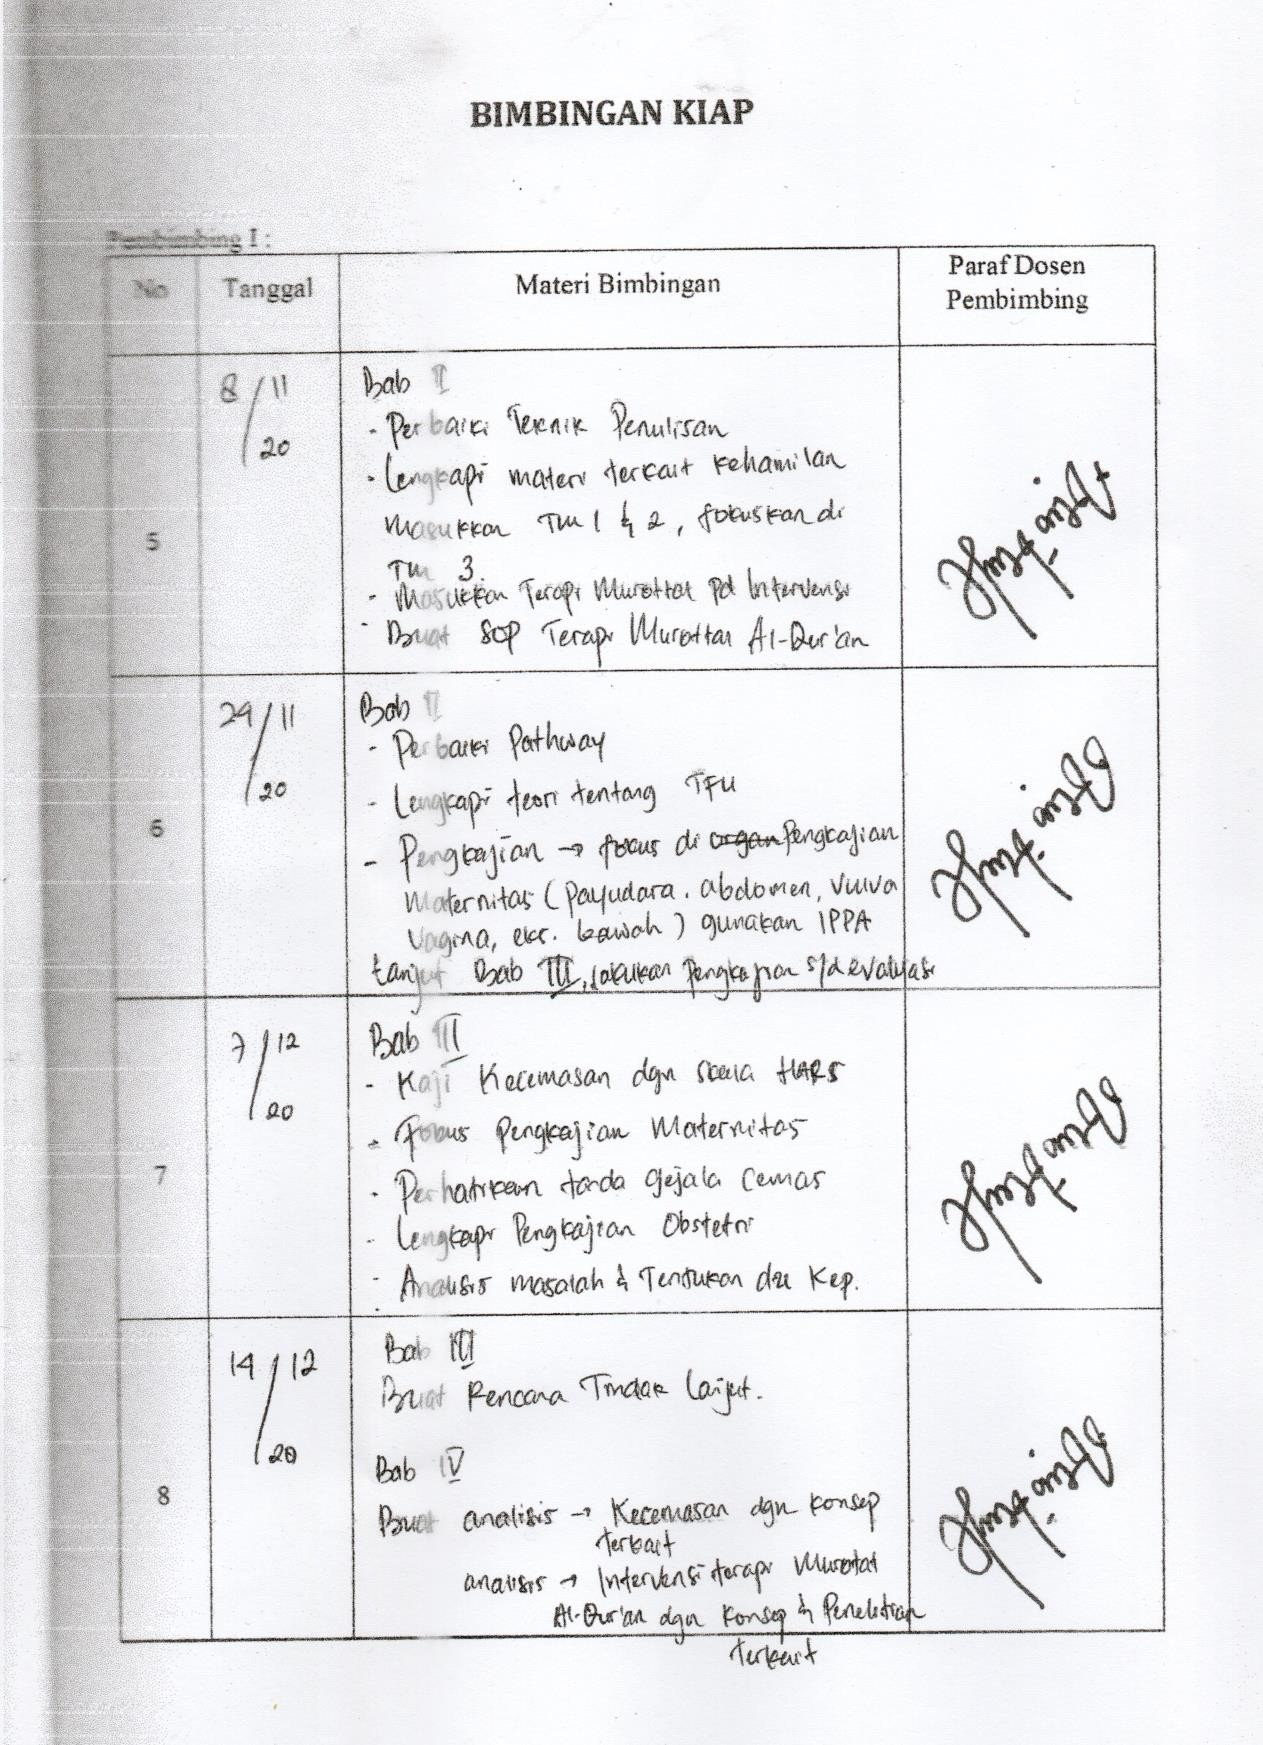 BIMBINGAN KIAP
Pembimbing I :
No Tanggal Materi Bimbingan Paraf Dosen
Pembimbing
5
8/11
20
Bab II
- Perbaiki Teknik Penulisan
- Lengkapi materi terkait kehamilan
Masukkan TM 1 & 2, fokuskan di
TM 3.
- Masukkan Terapi Murottal pd Intervensi
- Buat SOP Terapi Murottal Al-Qur'an
6
29/11
20
Bab II
- Perbaiki Pathway
- Lengkapi teori tentang TFU
- Pengkajian → fokus di organ Pengkajian
Maternitas (Payudara. abdomen, vulva
vagina, eks. bawah) gunakan IPPA
Lanjut Bab III, lakukan Pengkajian s/d evaluasi
7
7/12
20
Bab III
- Kaji Kecemasan dgn skala HARS
- Fokus Pengkajian Maternitas
- Perhatikan tanda gejala Cemas
- Lengkapi Pengkajian Obstetri
- Analisis masalah & Tentukan dx Kep.
8
14/12
20
Bab III
Buat Rencana Tindak lanjut.
Bab IV
Buat analisis → Kecemasan dgn konsep
terkait
analisis → Intervensi terapi Murottal
Al-Qur'an dgn Konsep & Penelitian
Terkait